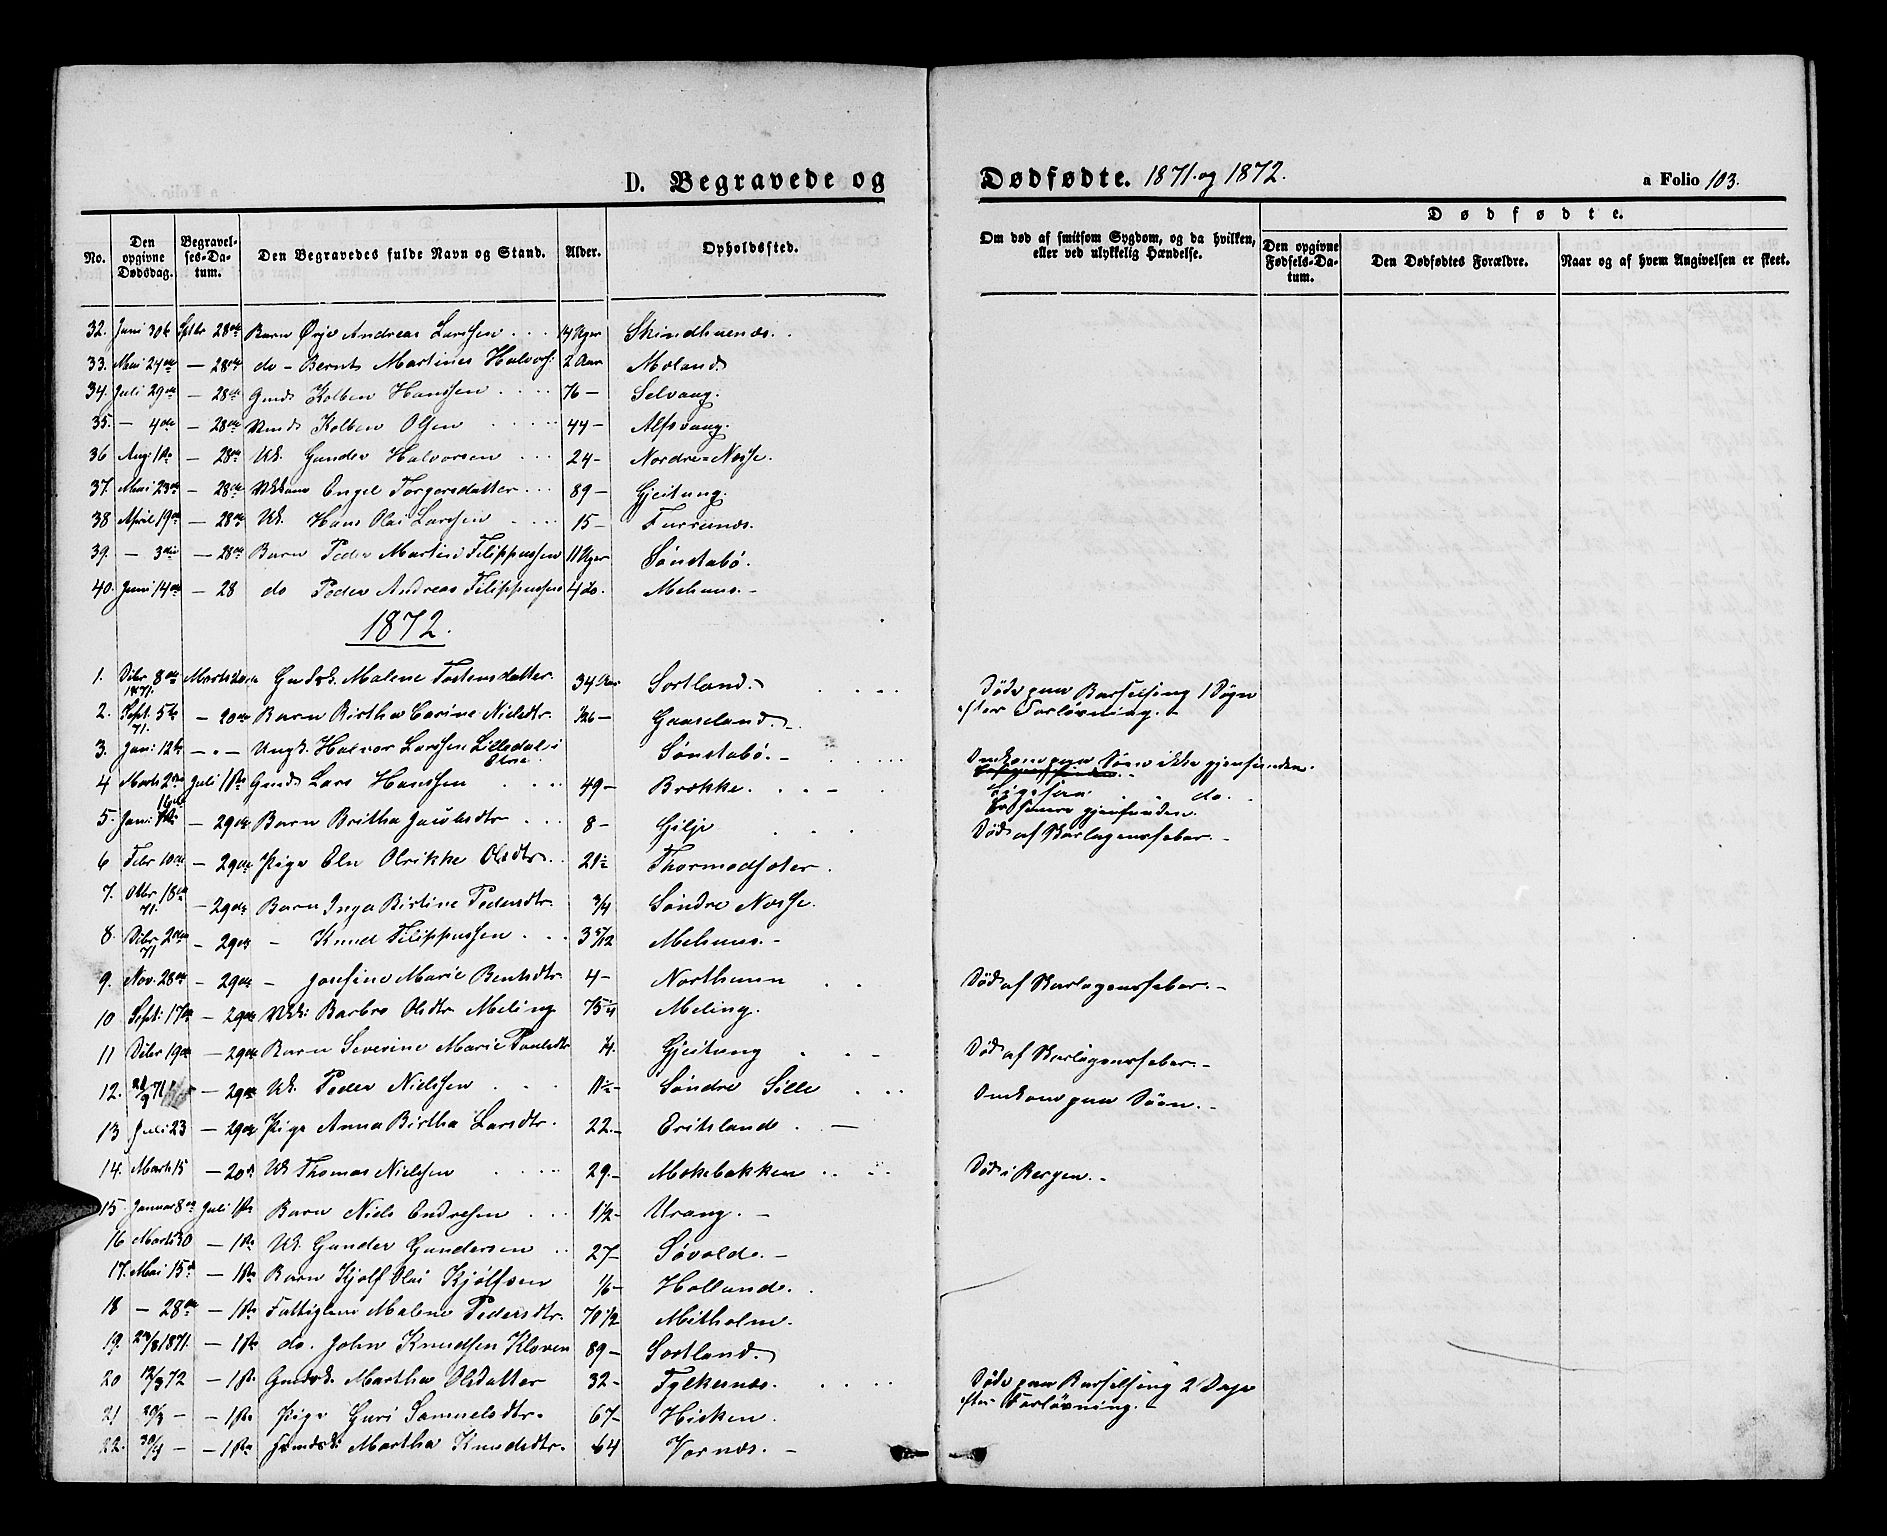 D. Begravede og Dødfødte. 1871. og 1872.
a Folio 103.
No. Den opgivne Dødsdag. Begravelses-Datum. Den Begravedes fulde Navn og Stand. Alder. Opholdssted. Om død af smitsom Sygdom, og da hvilken, eller ved ulykkelig Hændelse. Dødfødte. Den opgivne Fødsels-Datum. Den Dødfødtes Forældre. Naar og af hvem Angivelsen er skeet.
32. Juni 30te Sptbr 28de Barn Andreas Larssen 14 Uger
33. Mai 24de — 28de do - Bernt Martines Halvors: 2 Aar Moland
34. Juli 29de — 28de Gmd: Kolben Hanssen 76 — Selvaag.
35. — 4de — 28de Kolben Olsen 44 — Alfsvaag.
36 Aug: 1ste — 28de Uk. Gunder Halvorsen 24 — Nordre-Næsse.
37. Mai 23de — 28de Engel Torgersdatter 89 — Gjeitung.
38 April 19de — 28de Uk. Hans Olai Larssen 15 —
39. — 3die — 28de Barn Peder Martin Filippussen 11 Uger Sønstabø.
40. Juni 14de — 28 do Peder Andreas Filippussen 4 do. Melhuus.
1872.
1. Dcbr 8de 1871. Marts 20de Malene Tostensdatter 34 Aar Sortland. Døde paa Barselseng 1 Døgn
efter Forløsning.
2. Sept. 5te 71. — 20de Barn Birtha Carine Nielsdtr. 1/26 — Gaaseland.
3. Jan: 12te — " — Ungk. Halvor Larssen Sønstabø. Omkom paa Søen ikke gjenfunden.
4 Marts 2den Juli 1ste Gmd: Lars Hanssen 49 — Brække. Ligesaa do.
Er senere gjenfunden.
5. Jan: — 29de Barn Britha Jacobsdtr 8 — Gilje Død af Skarlagensfeber.
6 Febr 10de — 29de Pige Olrikke Olsdtr. 21 1/2 Thormodsæter.
7. Otbr. 18de 71. — 29de Barn Inga Birtine Pedersdtr. 3/4 Søndre Næsse.
8. Dcbr 2den 71 — 29de — Knud Filippussen 3 5/12 Melhuus.
9. Nov. 28de — 29de — Josefine Marie Bentsdtr 4 — Northuun Død af Skarlagensfeber.
10 Sept: 17de — 29de Barbro Olsdtr Meling 75 1/4 Meling.
11 Dcbr 19de — 29de Barn Severine Marie Poulsdtr 1/4. Gjeitung Død af Skarlagensfeber.
12. — 29de Uk. Peder Nielssen 11 1/2 — Søndre Sille Omkom paa Søen.
13 Juli 23 — 29de Pige Anna Birtha Larsdtr. 22. — Eriksland
14. Marts 15 — 20de Uk Thomas Nielssen 29. — Mokebakken Død i Bergen.
15. Januar 8de Juli 1ste Barn Niels Endresen 1 1/2 — Urang.
16 Marts 30 — 1ste Uk. Gunder Gundersen 27 — Søvold.
17. Mai 15de — 1ste Barn Kjølf Olai Kjølfsen 1/6 — Holland.
18 — 28de — 1ste Fattiglem Malene Pedersdtr. 70 1/2 Mitholm.
19. 29/8 1871. — 1ste do. John Knudsen Kloven 89 — Sortland.
20 12/3 72 — 1ste Martha Olsdatter 32 — Fylkesnæs. Døde paa Barselseng 2 Dage
efter Forløsning.
21 — 1ste Pige Guri Samuelsdtr. 67 — Hisken.
22. — — 1ste Martha Knudsdtr. 64 Vornæs.